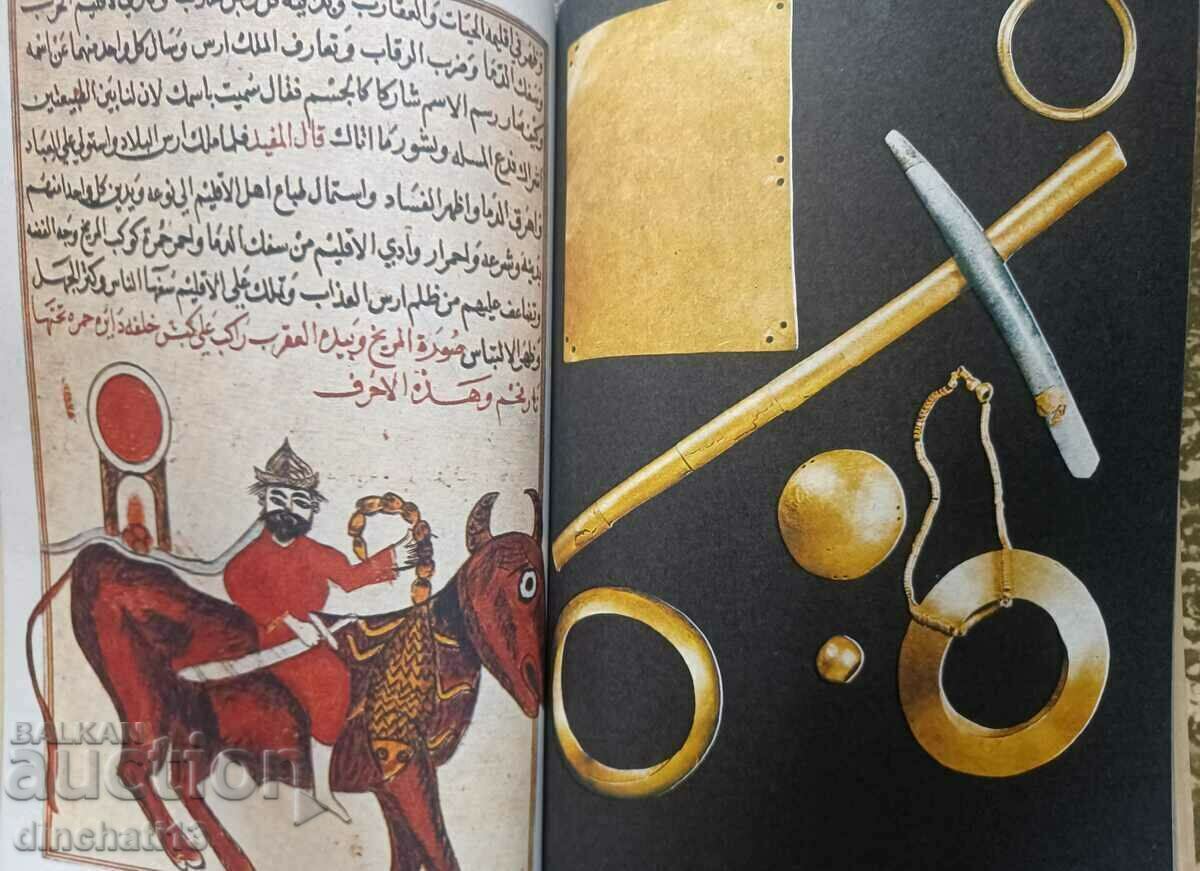 وظهر في اقليمه الحيات والعقارب
وسفك الدما وضرب الرقاب وتعارف الملك ارس وسال كل واحد منهما عن اسمه
رسم الاسم شاركا كالجسم فقال سميت باسمك لان لنا بين الطبيعتين
قال المفيد فلما ملك ارس البلاد واستولي علي العباد
واهرق الدما واظهر الفساد واستمال طباع اهل الاقليم الي نوعه ويدين كل واحد منهم
بدينه وشرعه واحمرار وادي الاقليم من سفك الدما واحمر حمرة كوكب المريخ وجه الفضه
وتضاعف عليهم من ظلم ارس العذاب وتملك علي الاقليم سفها الناس وكثر الجهل
وظهر الالتباس صورة المريخ وبيده العقرب راكب علي كبش خلفه دايره حمره تحتها
نار وهذه الاحرف
BALKAN
auction
dinchati13